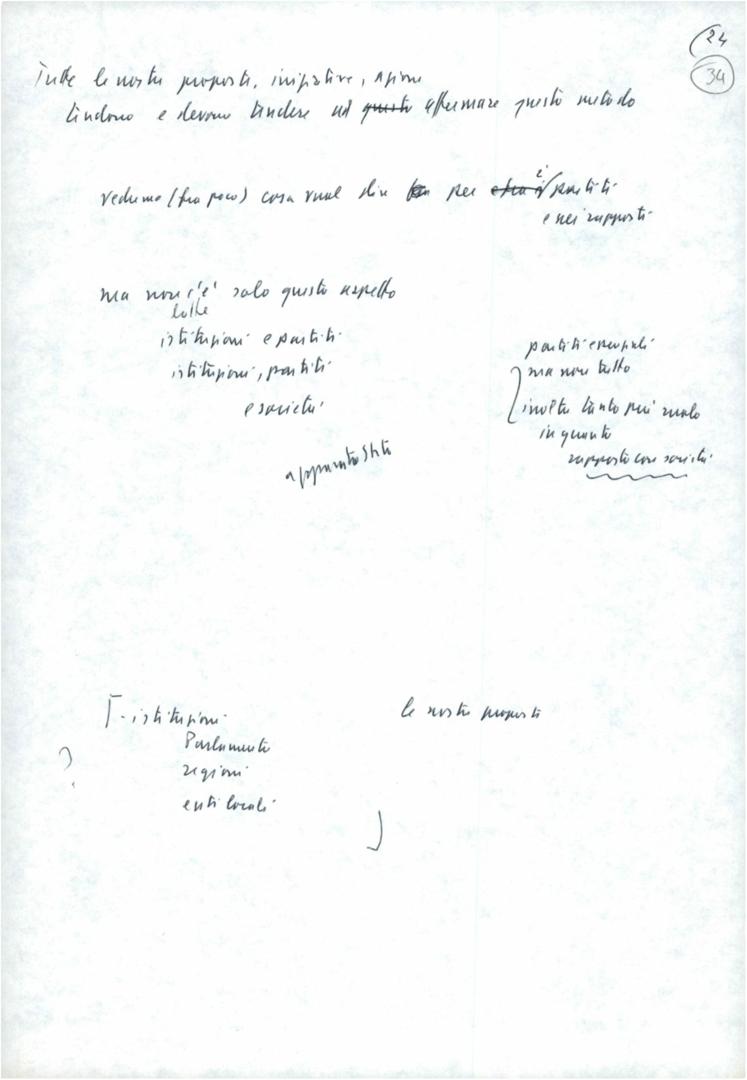 24
34
Tutte le nostre proposte, iniziative, azioni
tendono e devono tendere ad questo affermare questo metodo
vedremo (fra poco) cosa vuol dire per i partiti
e nei rapporti
ma non c'è solo questo aspetto
lotte
istituzioni e partiti
istituzioni, partiti
e società
apparato Stato
partiti essenziali
ma non tutto
inoltre tanto più ruolo
in quanto
rapporto con società
- istituzioni
Parlamento
regioni
enti locali
?
le nostre proposte